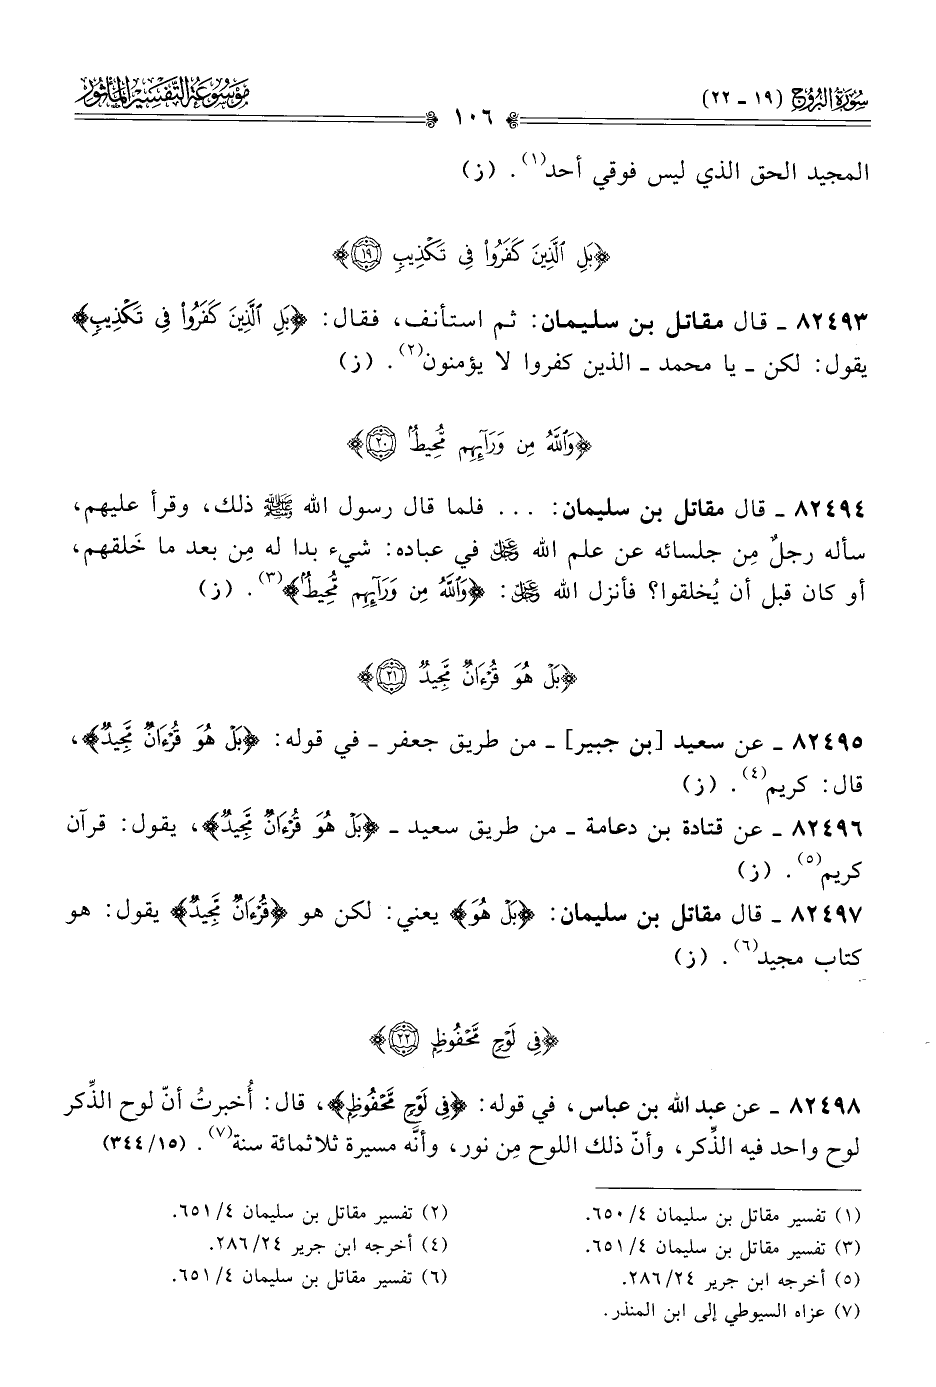 سورة البروج (١٩ - ٢٢)
موسوعة التفسير المأثور
١٠٦
المجيد الحق الذي ليس فوقي أحد(١). (ز)
﴿بَلِ ٱلَّذِينَ كَفَرُوا۟ فِى تَكْذِيبٍ ١٩﴾
٨٢٤٩٣ ـ قال مقاتل بن سليمان: ثم استأنف، فقال: ﴿بَلِ ٱلَّذِينَ كَفَرُوا۟ فِى تَكْذِيبٍ﴾
يقول: لكن ـ يا محمد ـ الذين كفروا لا يؤمنون(٢). (ز)
﴿وَٱللَّهُ مِن وَرَآئِهِم مُّحِيطٌۢ ٢٠﴾
٨٢٤٩٤ ـ قال مقاتل بن سليمان: ... فلما قال رسول الله ﷺ ذلك، وقرأ عليهم،
سأله رجلٌ مِن جلسائه عن علم الله ﷿ في عباده: شيء بدا له مِن بعد ما خَلقهم،
أو كان قبل أن يُخلقوا؟ فأنزل الله ﷿: ﴿وَٱللَّهُ مِن وَرَآئِهِم مُّحِيطٌۢ﴾(٣). (ز)
﴿بَلْ هُوَ قُرْءَانٌ مَّجِيدٌ ٢١﴾
٨٢٤٩٥ ـ عن سعيد [بن جبير] ـ من طريق جعفر ـ في قوله: ﴿بَلْ هُوَ قُرْءَانٌ مَّجِيدٌ﴾،
قال: كريم(٤). (ز)
٨٢٤٩٦ ـ عن قتادة بن دعامة ـ من طريق سعيد ـ ﴿بَلْ هُوَ قُرْءَانٌ مَّجِيدٌ﴾، يقول: قرآن
كريم(٥). (ز)
٨٢٤٩٧ ـ قال مقاتل بن سليمان: ﴿بَلْ هُوَ﴾ يعني: لكن هو ﴿قُرْءَانٌ مَّجِيدٌ﴾ يقول: هو
كتاب مجيد(٦). (ز)
﴿فِى لَوْحٍ مَّحْفُوظٍۭ ٢٢﴾
٨٢٤٩٨ ـ عن عبد الله بن عباس، في قوله: ﴿فِى لَوْحٍ مَّحْفُوظٍۭ﴾، قال: أُخبرتُ أنّ لوح الذِّكر
لوح واحد فيه الذِّكر، وأنّ ذلك اللوح مِن نور، وأنَّه مسيرة ثلاثمائة سنة(٧). (١٥/٣٤٤)
(١) تفسير مقاتل بن سليمان ٤/٦٥٠.
(٢) تفسير مقاتل بن سليمان ٤/٦٥١.
(٣) تفسير مقاتل بن سليمان ٤/٦٥١.
(٤) أخرجه ابن جرير ٢٤/٢٨٦.
(٥) أخرجه ابن جرير ٢٤/٢٨٦.
(٦) تفسير مقاتل بن سليمان ٤/٦٥١.
(٧) عزاه السيوطي إلى ابن المنذر.